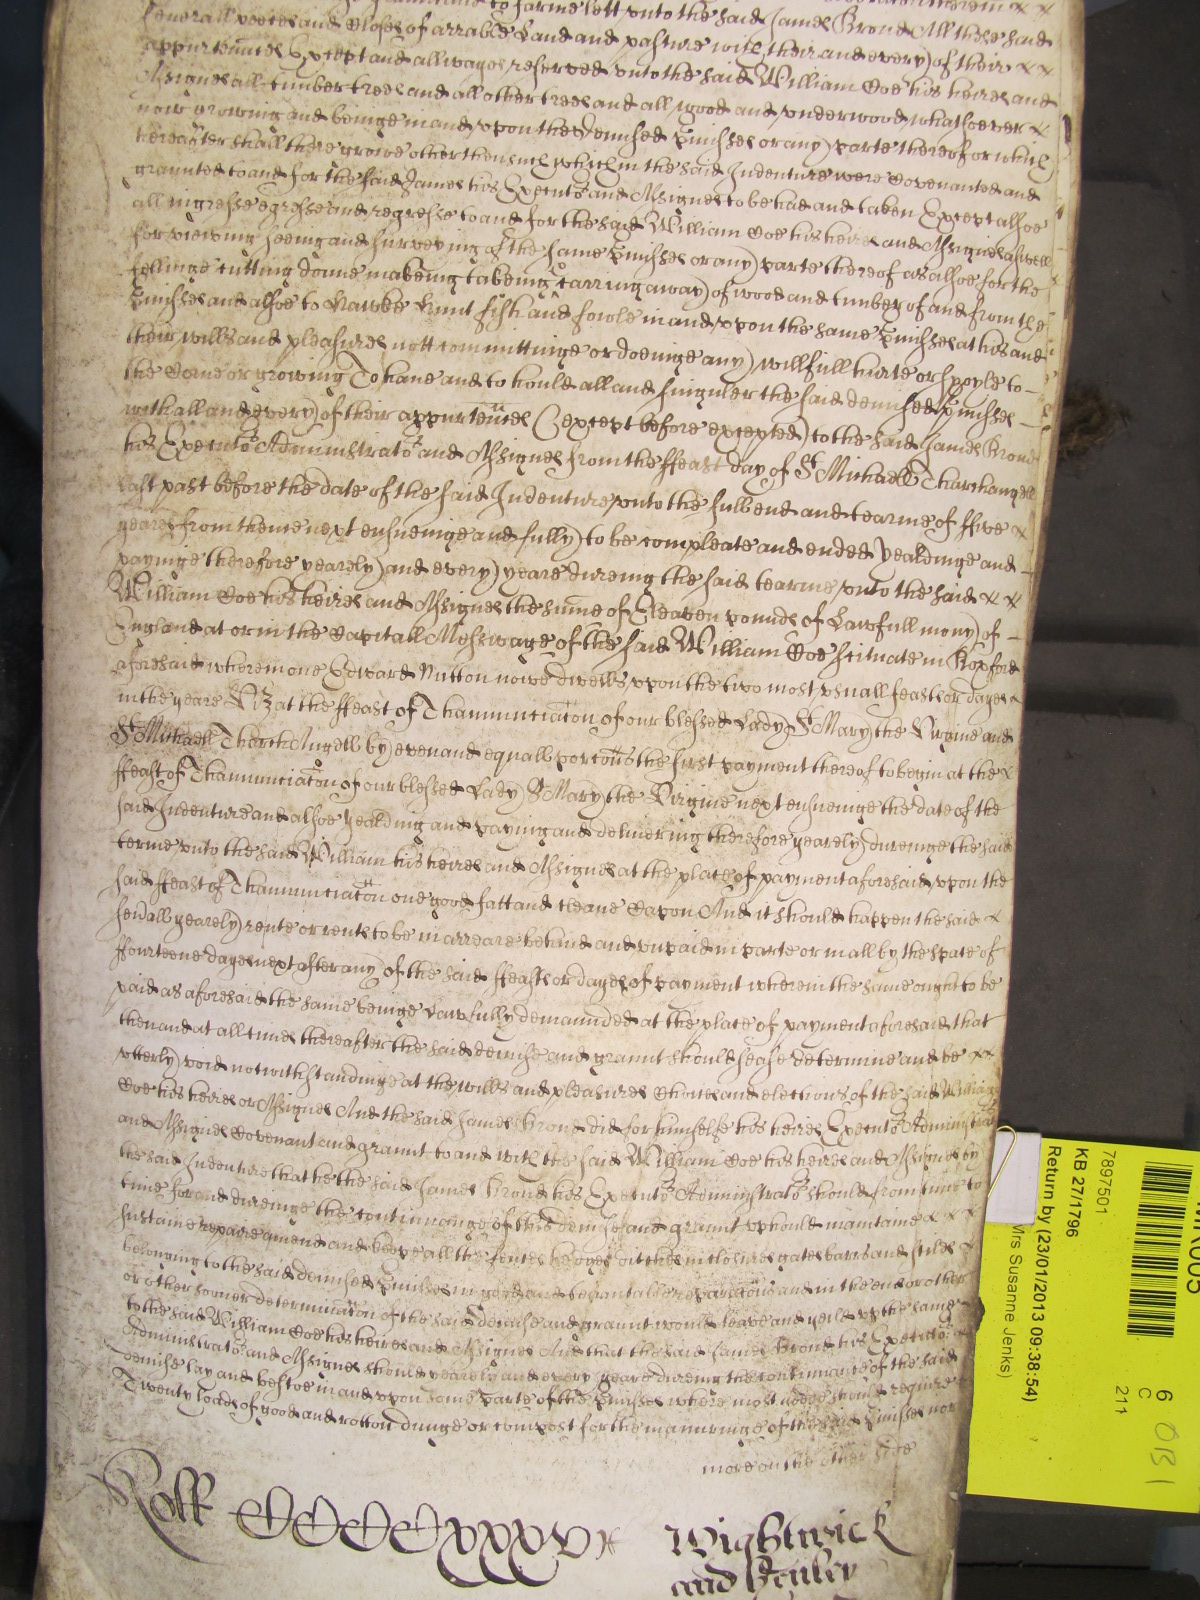 to farme lett unto the said James Brond All those said
severall peeces and Closes of arrable Land and pasture with their and every of their x x
appurtennces Except and allwayes reserved unto the said William Coe his heires and
Assignes all timber trees and all other trees and all wood and underwood whatsoever x
now growing and beinge in and upon the demised pmisses or any parte thereof or which
hereafter shall there growe other then such which in the said Indenture were Covenanted and
graunted to and for the said James his Executors and Assignes to be had and taken Except alsoe
all ingresse egresse and regresse to and for the said William Coe his heires and Assignes aswell
for viewing seeing and surveying of the same pmisses or any parte thereof as alsoe for the
fellinge cutting downe makeing takeing & carring away of wood and timber of and from the
pmisses and alsoe to Hawke hunt fish and fowle in and upon the same pmisses at his and
their wills and pleasures nott committinge or doeinge any willfull hurte or spoyle to -
the Corne or growing To have and to hould all and singuler the said demised pmisses -
with all and every of their appurtennces (except before excepted) to the said James Brond
his Executors Administrators and Assignes from the ffeast day of St Michaell Tharchangell
last past before the date of the said Indenture unto the full end and tearme of ffive x
yeares from thence next ensueinge and fully to be compleate and ended Yealdinge and -
payinge therefore yearely and every yeare dureing the said tearme unto the said x x
William Coe his heires and Assignes the sume of Eleaven pounds of Lawfull mony of -
England at or in the Capitall Messuage of the said William Coe scituate in Boxford
aforesaid wherein one Edward Nutton nowe dwells upon the two most usuall feasts or dayes x
in the yeare Viz at the ffeast of Thannunciacon of our blessed Lady St Mary the Virgine and
St Michaell Tharchangell by even and equall porcons the first payment thereof to begin at the x
ffeast of Thannunciacon of our blessed Lady St Mary the Virgine next ensueinge the date of the
said Indenture and alsoe Yealding and paying and delivering therefore yearely dureinge the said
terme unto the said William his heires and Assignes at the place of payment aforesaid upon the
said ffeast of Thannunciacon one good fatt and cleane Capon And if it should happen the said x
sevall yearely rente or rents to be in arreare behind and unpaid in parte or in all by the space of
ffourteene dayes next after any of the said ffeasts or dayes of payment wherein the same ought to be
paid as aforesaid the same beinge Lawfully demaunded at the place of payment aforesaid that
then and at all times thereafter the said demise and graunt should sease determine and be x x
utterly void notwithstandinge at the wills and pleasures Choices and elections of the said William
Coe his heires or Assignes And the said James Brond did for himselfe his heires Executors Administrators
and Assignes Covenant and graunt to and with the said William Coe his heires and Assignes by
the said Indenture that he the said James Brond his Executors Administrators should from time to
time for and dureinge the continuange of this demise and graunt uphould maintaine x x x
sustaine repaire amend and keepe all the fences hedges ditches inclosures gates barrs and stiles x
belonging to the said demised pmisses in good and tenantable reparacons and in the end or other
or other sooner determinacon of the said demise and graunt would leave and yeild up the same
to the said William Coe his heires and Assignes And that the said James Brond his Executors
Administrators and Assignes should yearely and every yeare dureing the continuance of the said
demise lay and bestoe in and upon some parte of the pmisses where most neede should require
Twenty loads of good and rotton dunge or compost for the manuringe of the said pmisses nor
more on the other side
Roll CCCCxxxv
Wightwick
and Henley
7897501
KB 27/1796
Return by (23/01/2013 09:38:54)
Mrs Susanne Jenks)
6
C
211